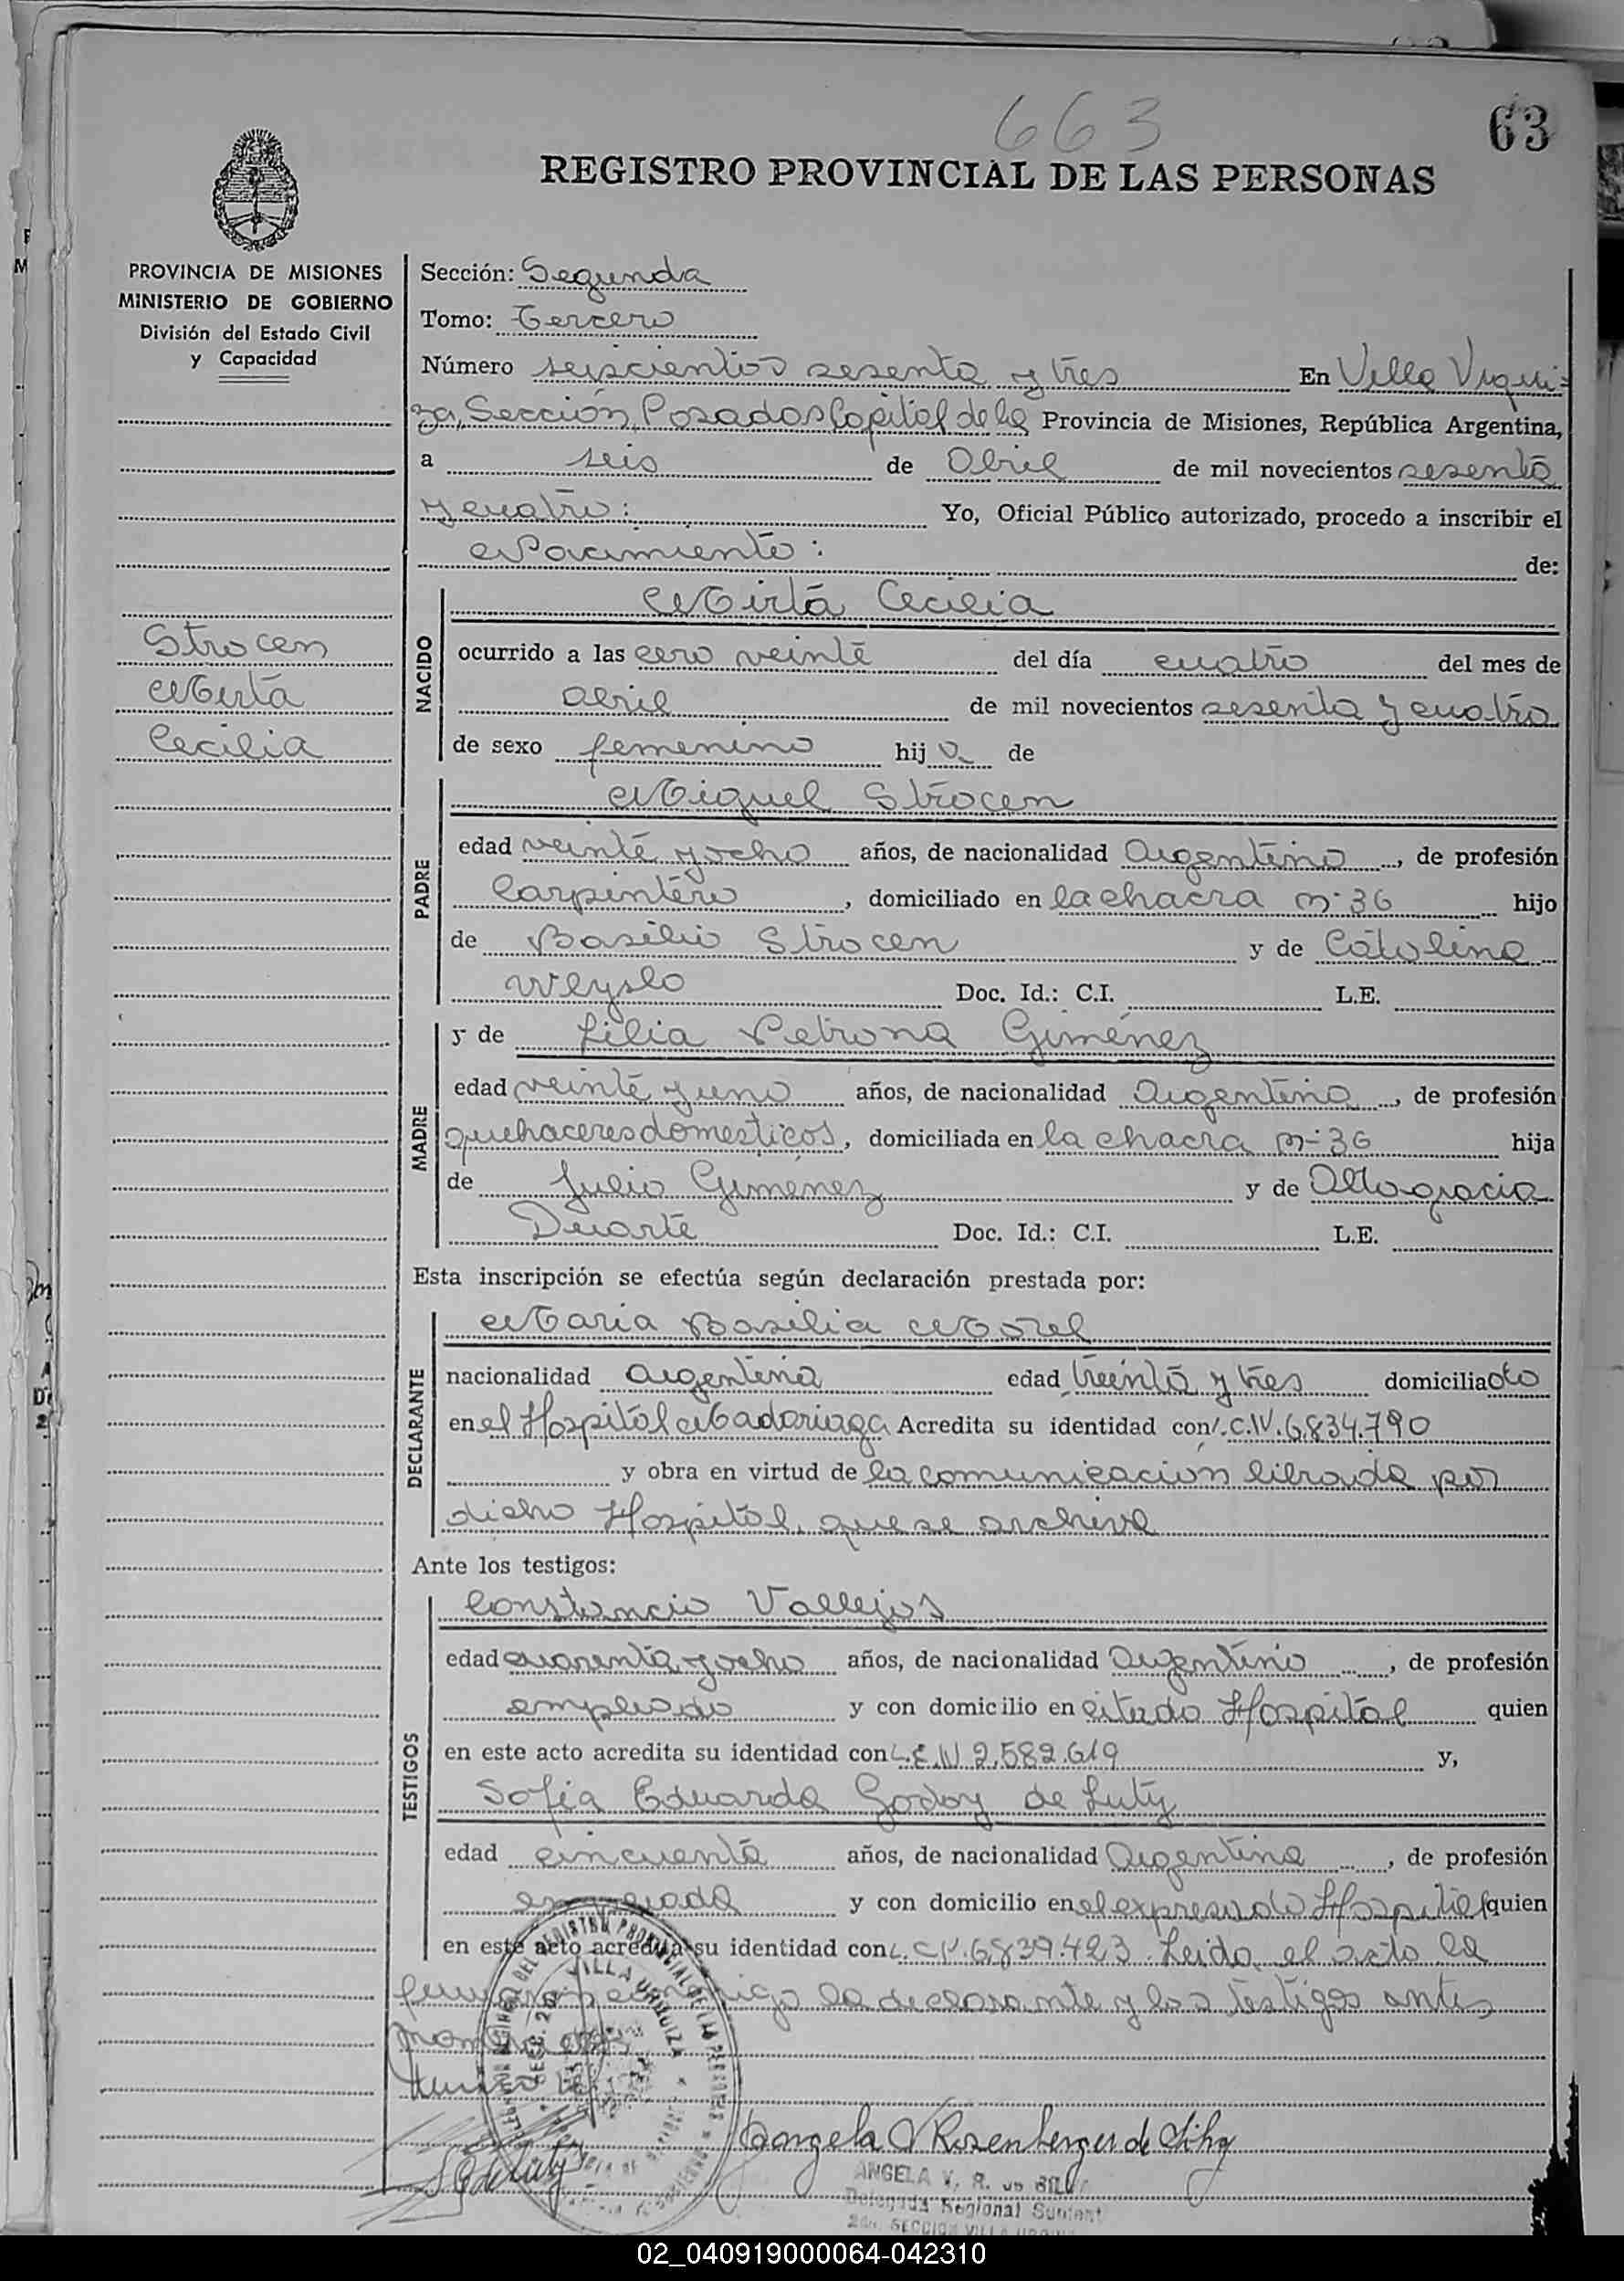 663
63
REGISTRO PROVINCIAL DE LAS PERSONAS
PROVINCIA DE MISIONES
MINISTERIO DE GOBIERNO
División del Estado Civil
y Capacidad
Strocen
Mirta
Cecilia
Sección: Segunda
Tomo: Tercero
Número seiscientos sesenta y tres En Villa Urqui=
za, Sección, Posadas Capital de la Provincia de Misiones, República Argentina,
a seis de Abril de mil novecientos sesenta
y cuatro: Yo, Oficial Público autorizado, procedo a inscribir el
Nacimiento: de:
NACIDO
Mirta Cecilia
ocurrido a las cero veinte del día cuatro del mes de
abril de mil novecientos sesenta y cuatro
de sexo femenino hija de
PADRE
Miguel Strocen
edad veinte y ocho años, de nacionalidad Argentino, de profesión
Carpintero, domiciliado en la chacra nº 36 hijo
de Basilio Strocen y de Catalina
Weyslo Doc. Id.: C.I. L.E.
MADRE
y de Lilia Petrona Giménez
edad veinte y uno años, de nacionalidad Argentina, de profesión
quehaceres domesticos, domiciliada en la chacra nº 36 hija
de Julio Giménez y de Altagracia
Duarte Doc. Id.: C.I. L.E.
Esta inscripción se efectúa según declaración prestada por:
DECLARANTE
Maria Basilia Morel
nacionalidad Argentina edad treinta y tres domiciliado
en el Hospital Madariaga Acredita su identidad con L.C.Nº.6.834.790
y obra en virtud de la comunicación librada por
dicho Hospital, que se archiva
Ante los testigos:
TESTIGOS
Constancio Vallejos
edad cuarenta y ocho años, de nacionalidad Argentino, de profesión
empleado y con domicilio en citado Hospital quien
en este acto acredita su identidad con L.E.Nº 2.582.619 y,
Sofia Eduarda Godoy de Luty
edad cincuenta años, de nacionalidad Argentina, de profesión
empleada y con domicilio en el expresado Hospital quien
en este acto acredita su identidad con L.C.Nº.6.839.423. Leida el acta la
firman conmigo la declarante y los testigos antes
VILLA URQUIZA
Angela V Rosenberger de Silva
ANGELA V. R. DE SILVA
Delegada Regional
02_040919000064-042310